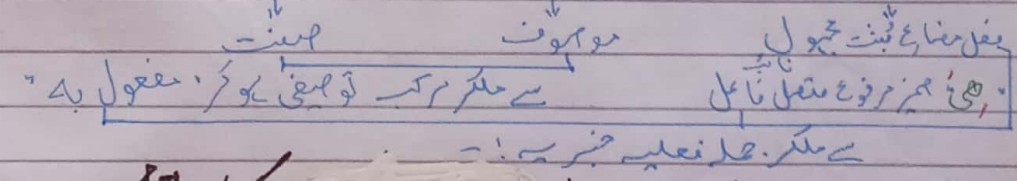 فعل مضارع مثبت مجہول موصوف صفت
نائب
"ھی" ضمیر مرفوع متصل فاعل سے ملکر مرکب توصیفی ہو کر، مفعول بہ "
سے ملکر جملہ فعلیہ خبریہ :-